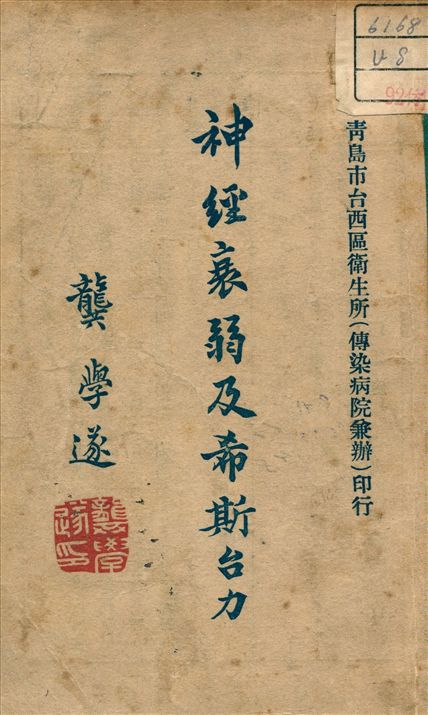 青島市台西區衛生所(傳染病院兼辦)印行
神經衰弱及希斯台力
龔學遂
龔學遂印
6168